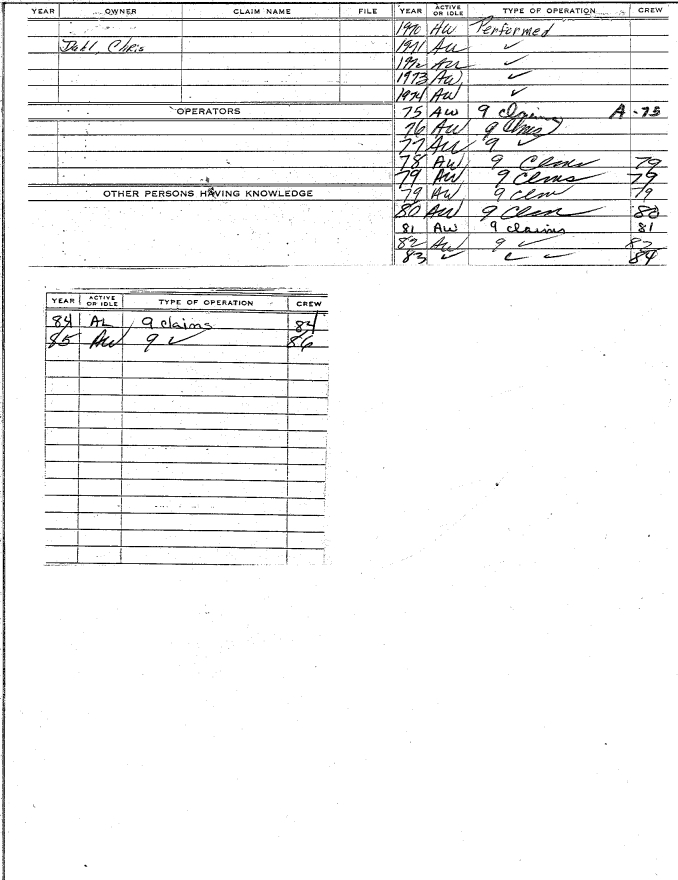 YEAR OWNER CLAIM NAME FILE YEAR ACTIVE OR IDLE TYPE OF OPERATION CREW
1970 AW Performed
Dahl, Chris 1971 AW ✓
1972 AW ✓
1973 AW ✓
1974 AW ✓
OPERATORS 75 AW 9 claims A-75
76 AW 9 Clms
77 AW 9 ✓
78 AW 9 Clms 79
79 AW 9 Clms 79
OTHER PERSONS HAVING KNOWLEDGE 79 AW 9 Clm 79
80 AW 9 Clm 80
81 AW 9 claims 81
82 AW 9 ✓ 82
83 ✓ ✓ ✓ 84
YEAR ACTIVE OR IDLE TYPE OF OPERATION CREW
84 AL 9 claims 84
85 AW 9 ✓ 86